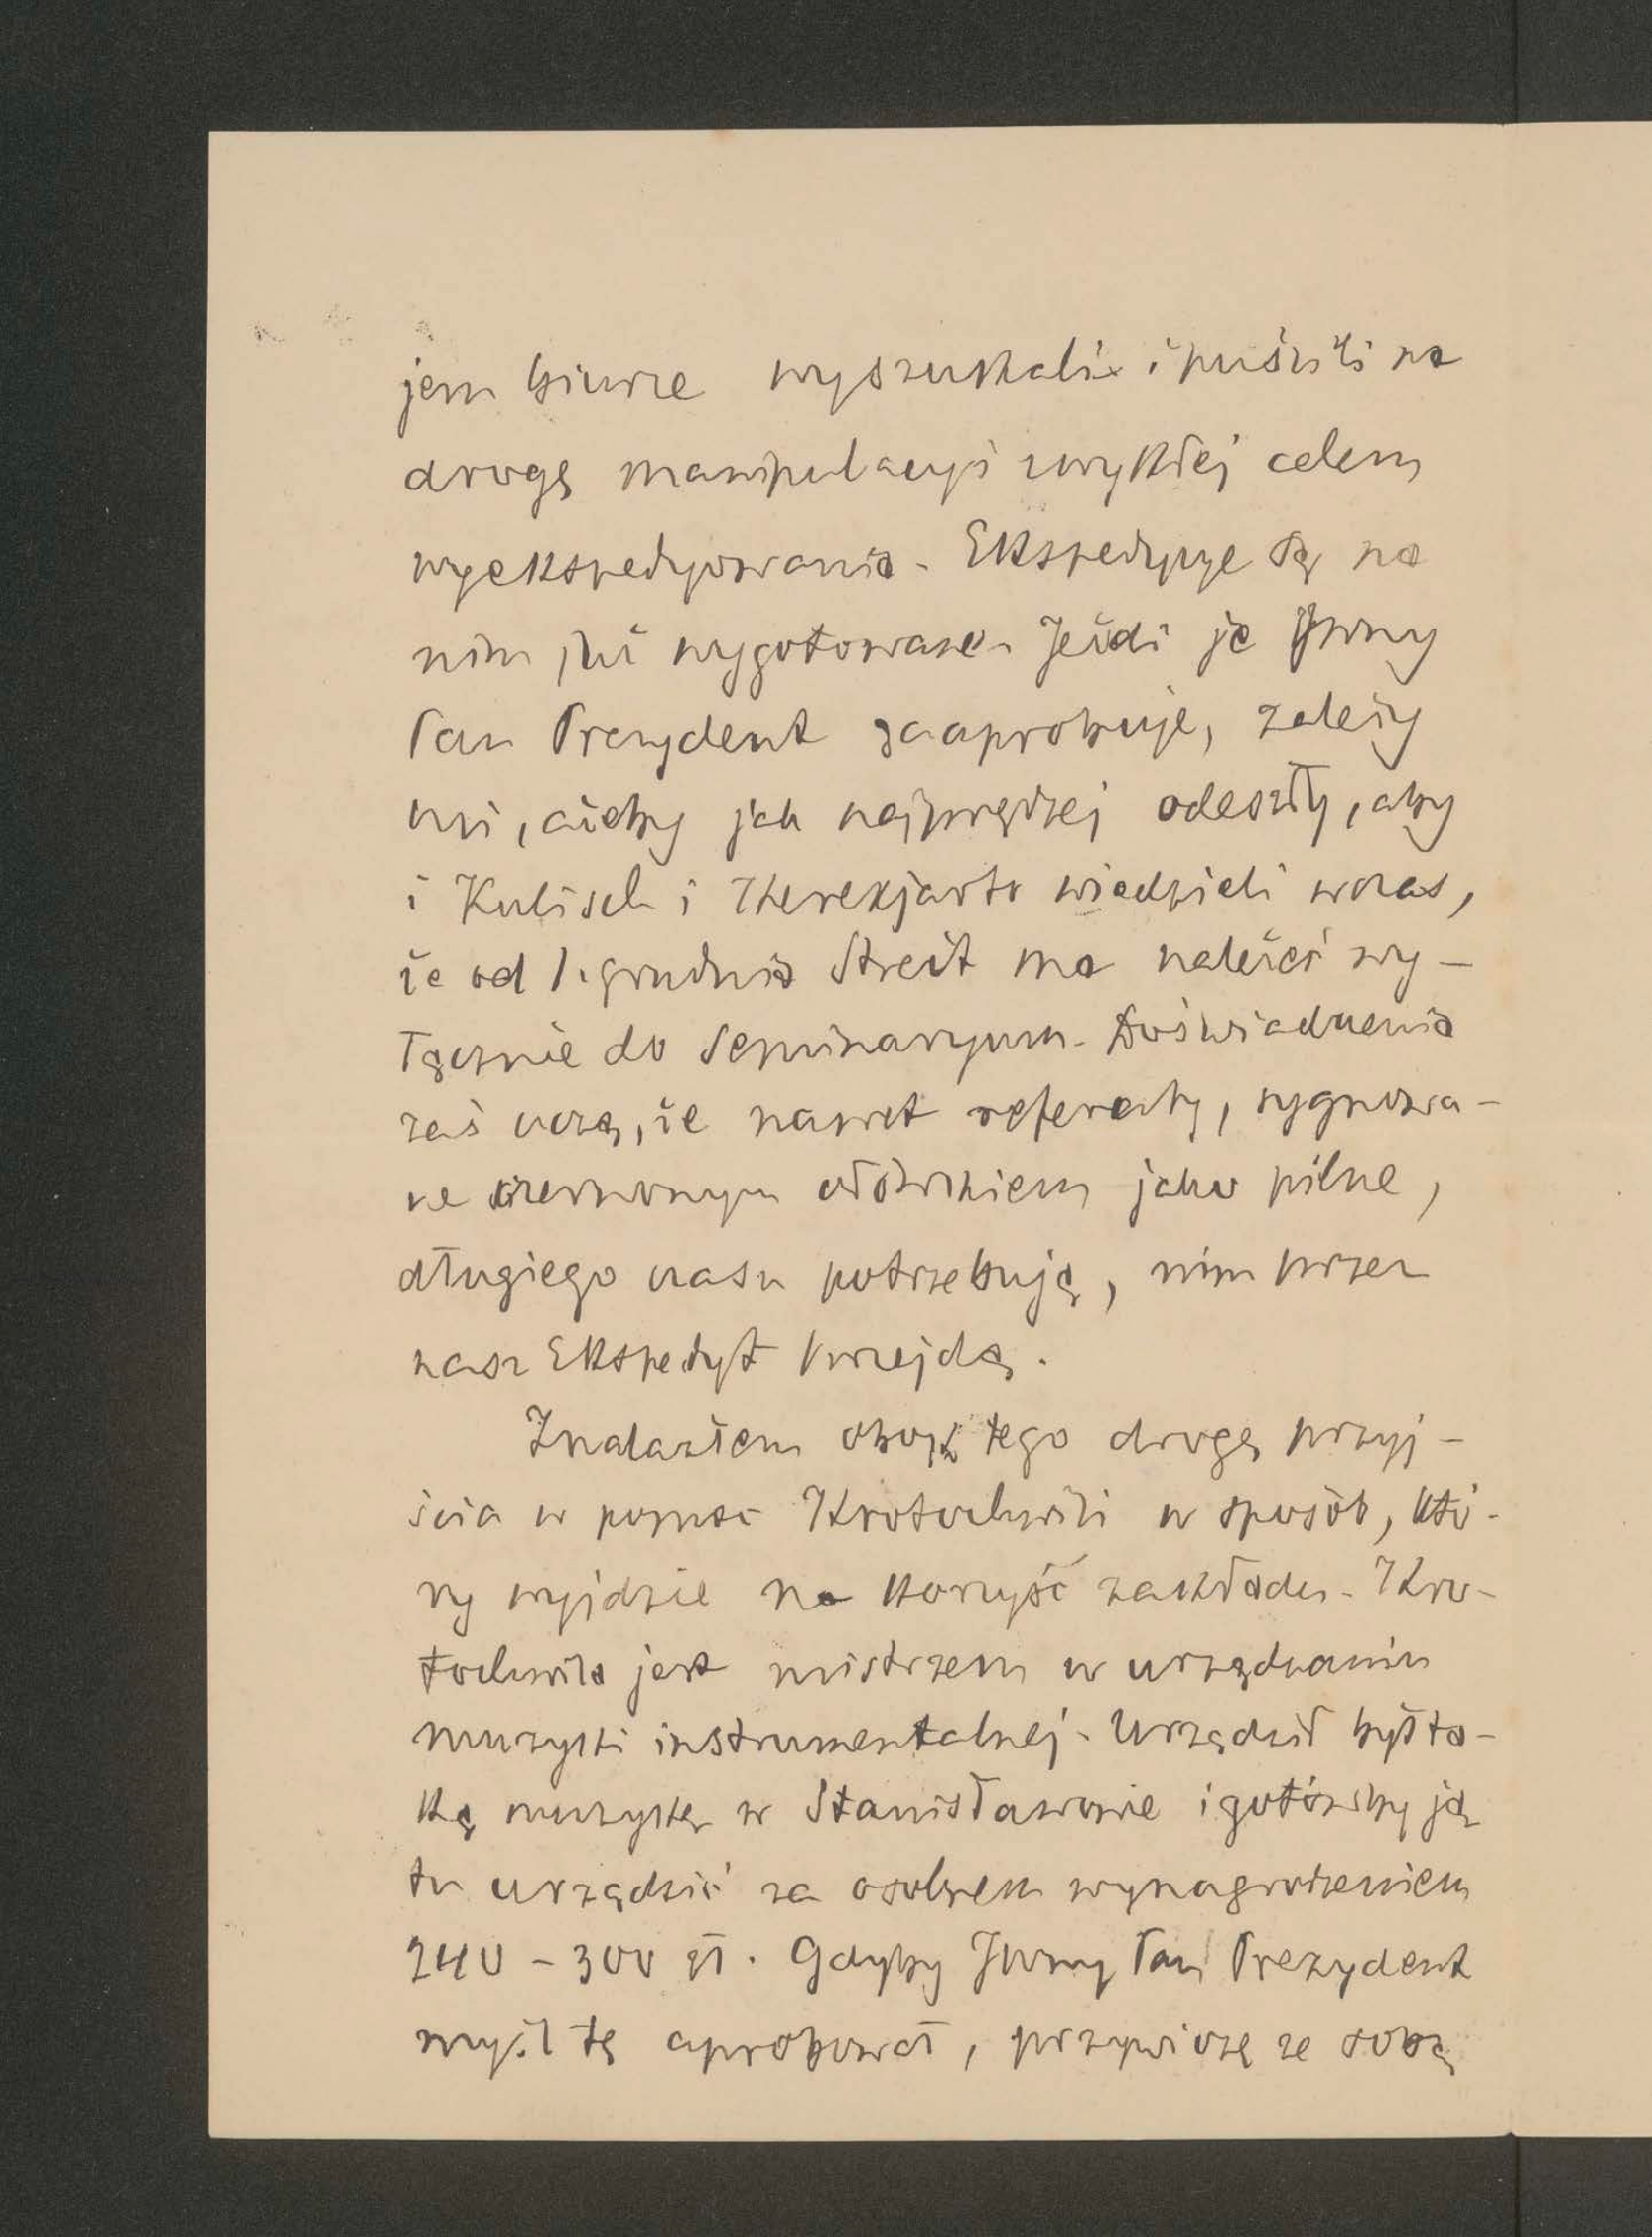 jem biurze wyszukali i puścili na
drogę manipulacyi zwykłej celem
wyekspedyowania. Ekspedycye są na
nim już wygotowane. Jeżeli je JWny
Pan Prezydent zaaprobuje, zależy
mi, ażeby jak najprędzej odeszły, aby
i Kulisch i Therekjarto wiedzieli wczas,
że od 1. grudnia Streit ma należeć wy-
łącznie do Seminaryum. Doświadczenia
zaś uczą, że nawet referaty, sygnowa-
ne czerwonym ołówkiem jako pilne,
długiego czasu potrzebują, nim przez
nasz Ekspedyt przejdą.
Znalazłem obok tego drogę przyj-
ścia w pomoc Krotochwili w sposób, któ-
ry wyjdzie na korzyść zakładu. Kro-
tochwila jest mistrzem w urządzaniu
muzyki instrumentalnej. Urządził był ta-
ką muzykę w Stanisławowie i gotówby ją
tu urządzić za osobnem wynagrodzeniem
240 - 300 zł. Gdyby JWny Pan Prezydent
myśl tę aprobował, przywiozę ze sobą